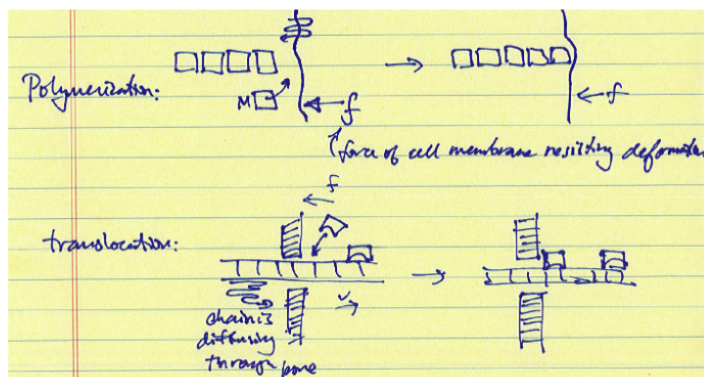 Polymerization:
M
f
→ f
force of cell membrane resisting deformation
f
translocation:
chain is
diffusing
through pore
v